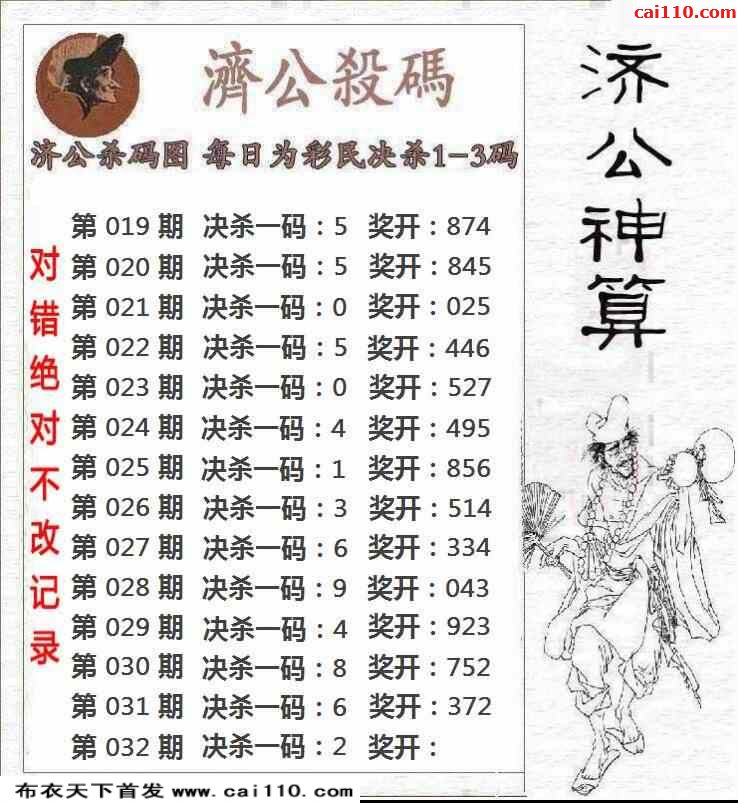 cai110.com
濟公殺碼
济公杀码图 每日为彩民决杀1-3码
第 019 期 决杀一码：5 奖开：874
第 020 期 决杀一码：5 奖开：845
第 021 期 决杀一码：0 奖开：025
第 022 期 决杀一码：5 奖开：446
第 023 期 决杀一码：0 奖开：527
第 024 期 决杀一码：4 奖开：495
第 025 期 决杀一码：1 奖开：856
第 026 期 决杀一码：3 奖开：514
第 027 期 决杀一码：6 奖开：334
第 028 期 决杀一码：9 奖开：043
第 029 期 决杀一码：4 奖开：923
第 030 期 决杀一码：8 奖开：752
第 031 期 决杀一码：6 奖开：372
第 032 期 决杀一码：2 奖开：
对错绝对不改记录
济公神算
布衣天下首发 www.cai110.com